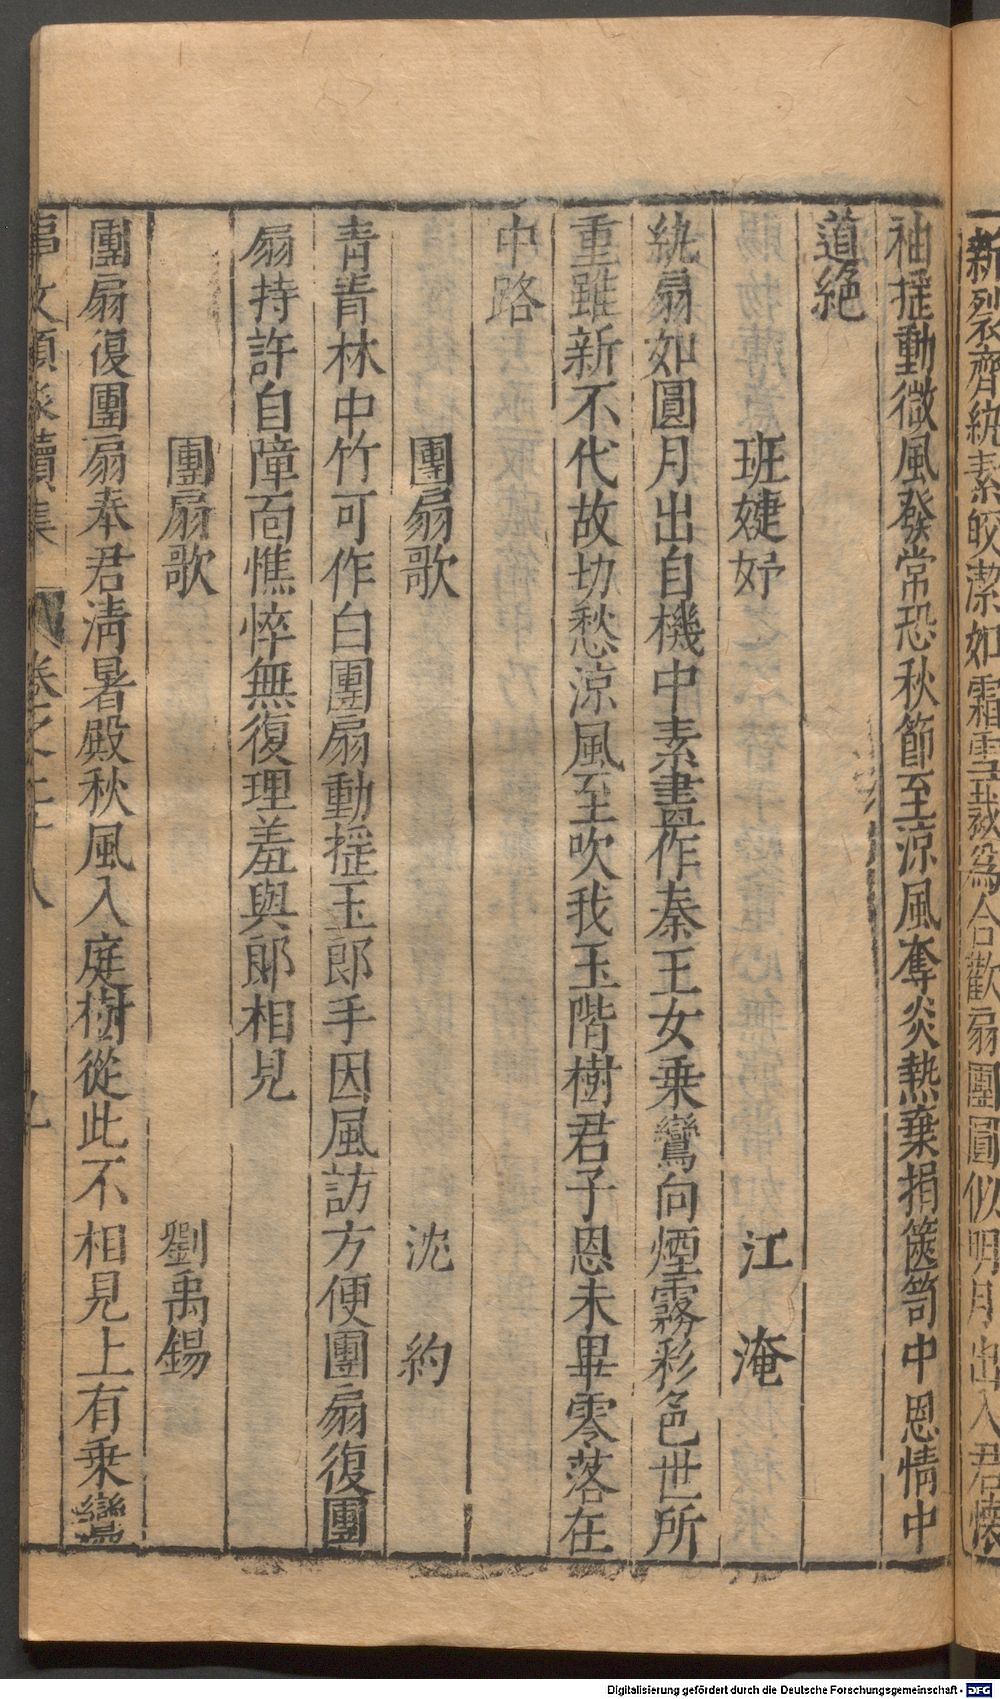 新裂齊紈素皎潔如霜雪裁為合歡扇團圓似明月出入君懷
袖揺動微風發常恐秋節至涼風奪炎熱棄捐篋笥中恩情中
道絕
班婕妤 江淹
紈扇如圓月出自機中素畫作秦王女乗鸞向煙霧彩色世所
重雖新不代故切愁涼風至吹我玉階樹君子恩未畢零落在
中路
團扇歌 沈約
青青林中竹可作白團扇動揺玉郎手因風訪方便團扇復團
扇持許自障面憔悴無復理羞與郎相見
團扇歌 劉禹錫
團扇復團扇奉君清暑殿秋風入庭樹從此不相見上有乗鸞
事文類聚續集 卷之二十八 九
Digitalisierung gefördert durch die Deutsche Forschungsgemeinschaft - DFG